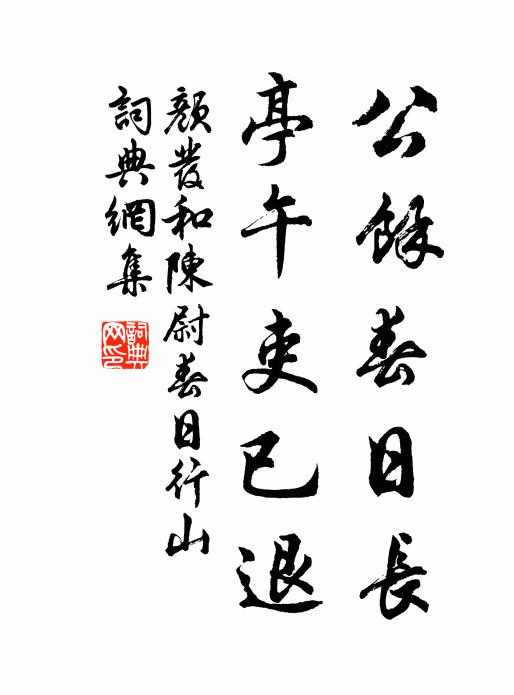 公餘春日長
亭午吏已退
顏發和陳尉春日行山
詞典網集
詞典網印